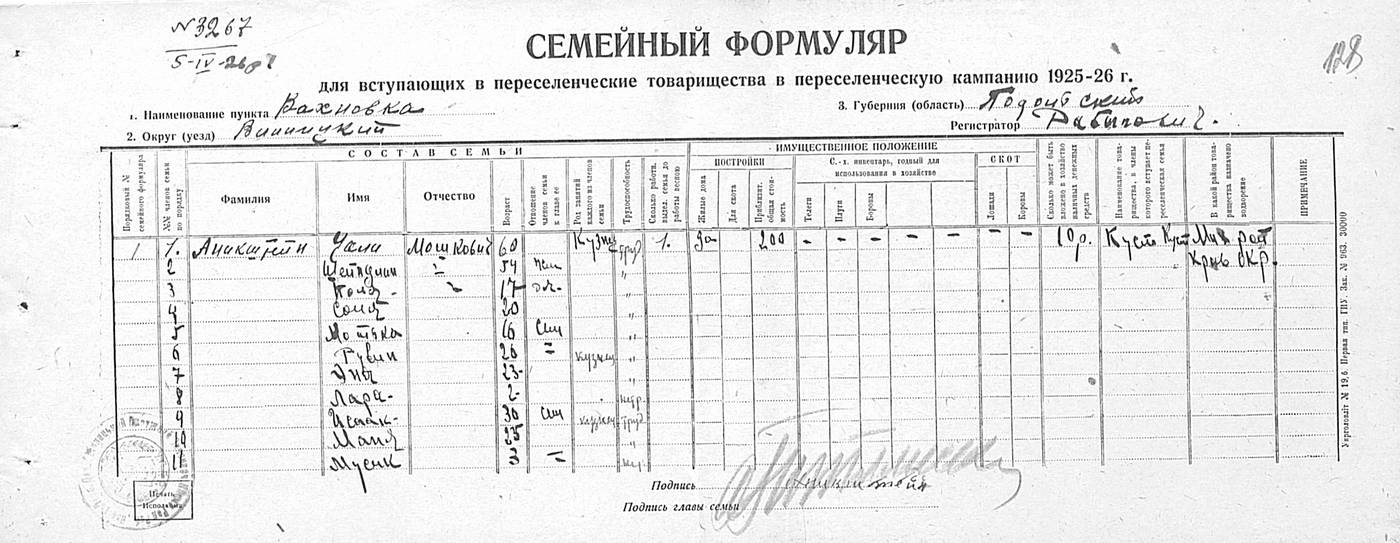 № 3267
5-IV-26
128
СЕМЕЙНЫЙ ФОРМУЛЯР
для вступающих в переселенческие товарищества в переселенческую кампанию 1925-26 г.
1. Наименование пункта Вахновка
3. Губерния (область) Подольский
2. Округ (уезд) Винницкий
Регистратор Рабинович.
СОСТАВ СЕМЬИ
ИМУЩЕСТВЕННОЕ ПОЛОЖЕНИЕ
ПОСТРОЙКИ
С.-х. инвентарь, годный для использования в хозяйстве
СКОТ
Порядковый № семейного формуляра
№№ членов семьи по порядку
Фамилия
Имя
Отчество
Возраст
Отношение членов семьи к главе ее
Род занятий каждого из членов семьи
Трудоспособность
Сколько работн. вызел. семья до работы весною
Жилые дома
Для скота
Приблизит. общая стоимость
Телеги
Плуги
Бороны
Лошади
Коровы
Сколько может быть вложено в хозяйство наличных денежных средств
Наименование товарищества, в члены которого вступает переселенческая семья
В какой район товарищества назначено водворение
ПРИМЕЧАНИЕ
1 1. Аникштейн Мошкович 60 Кузнец труд 1. За 200 - - - - - - - - - 10 р.
2 54 "
3 17 "
4 Соня 20 "
5 Мотька 16 Сын "
6 Рувин 26 = кузнец "
7 23 "
8 Лара 2 нтр.
9 Исаак 30 Сын кузнец труд
10 Маня 25 "
11 Мусик 3 = нтр.
Печать
Исполкома
Подпись Аникштейн
Подпись главы семьи
Укрголовліт № 19,6. Первая тип. ГПУ. Зак. № 963. 30000